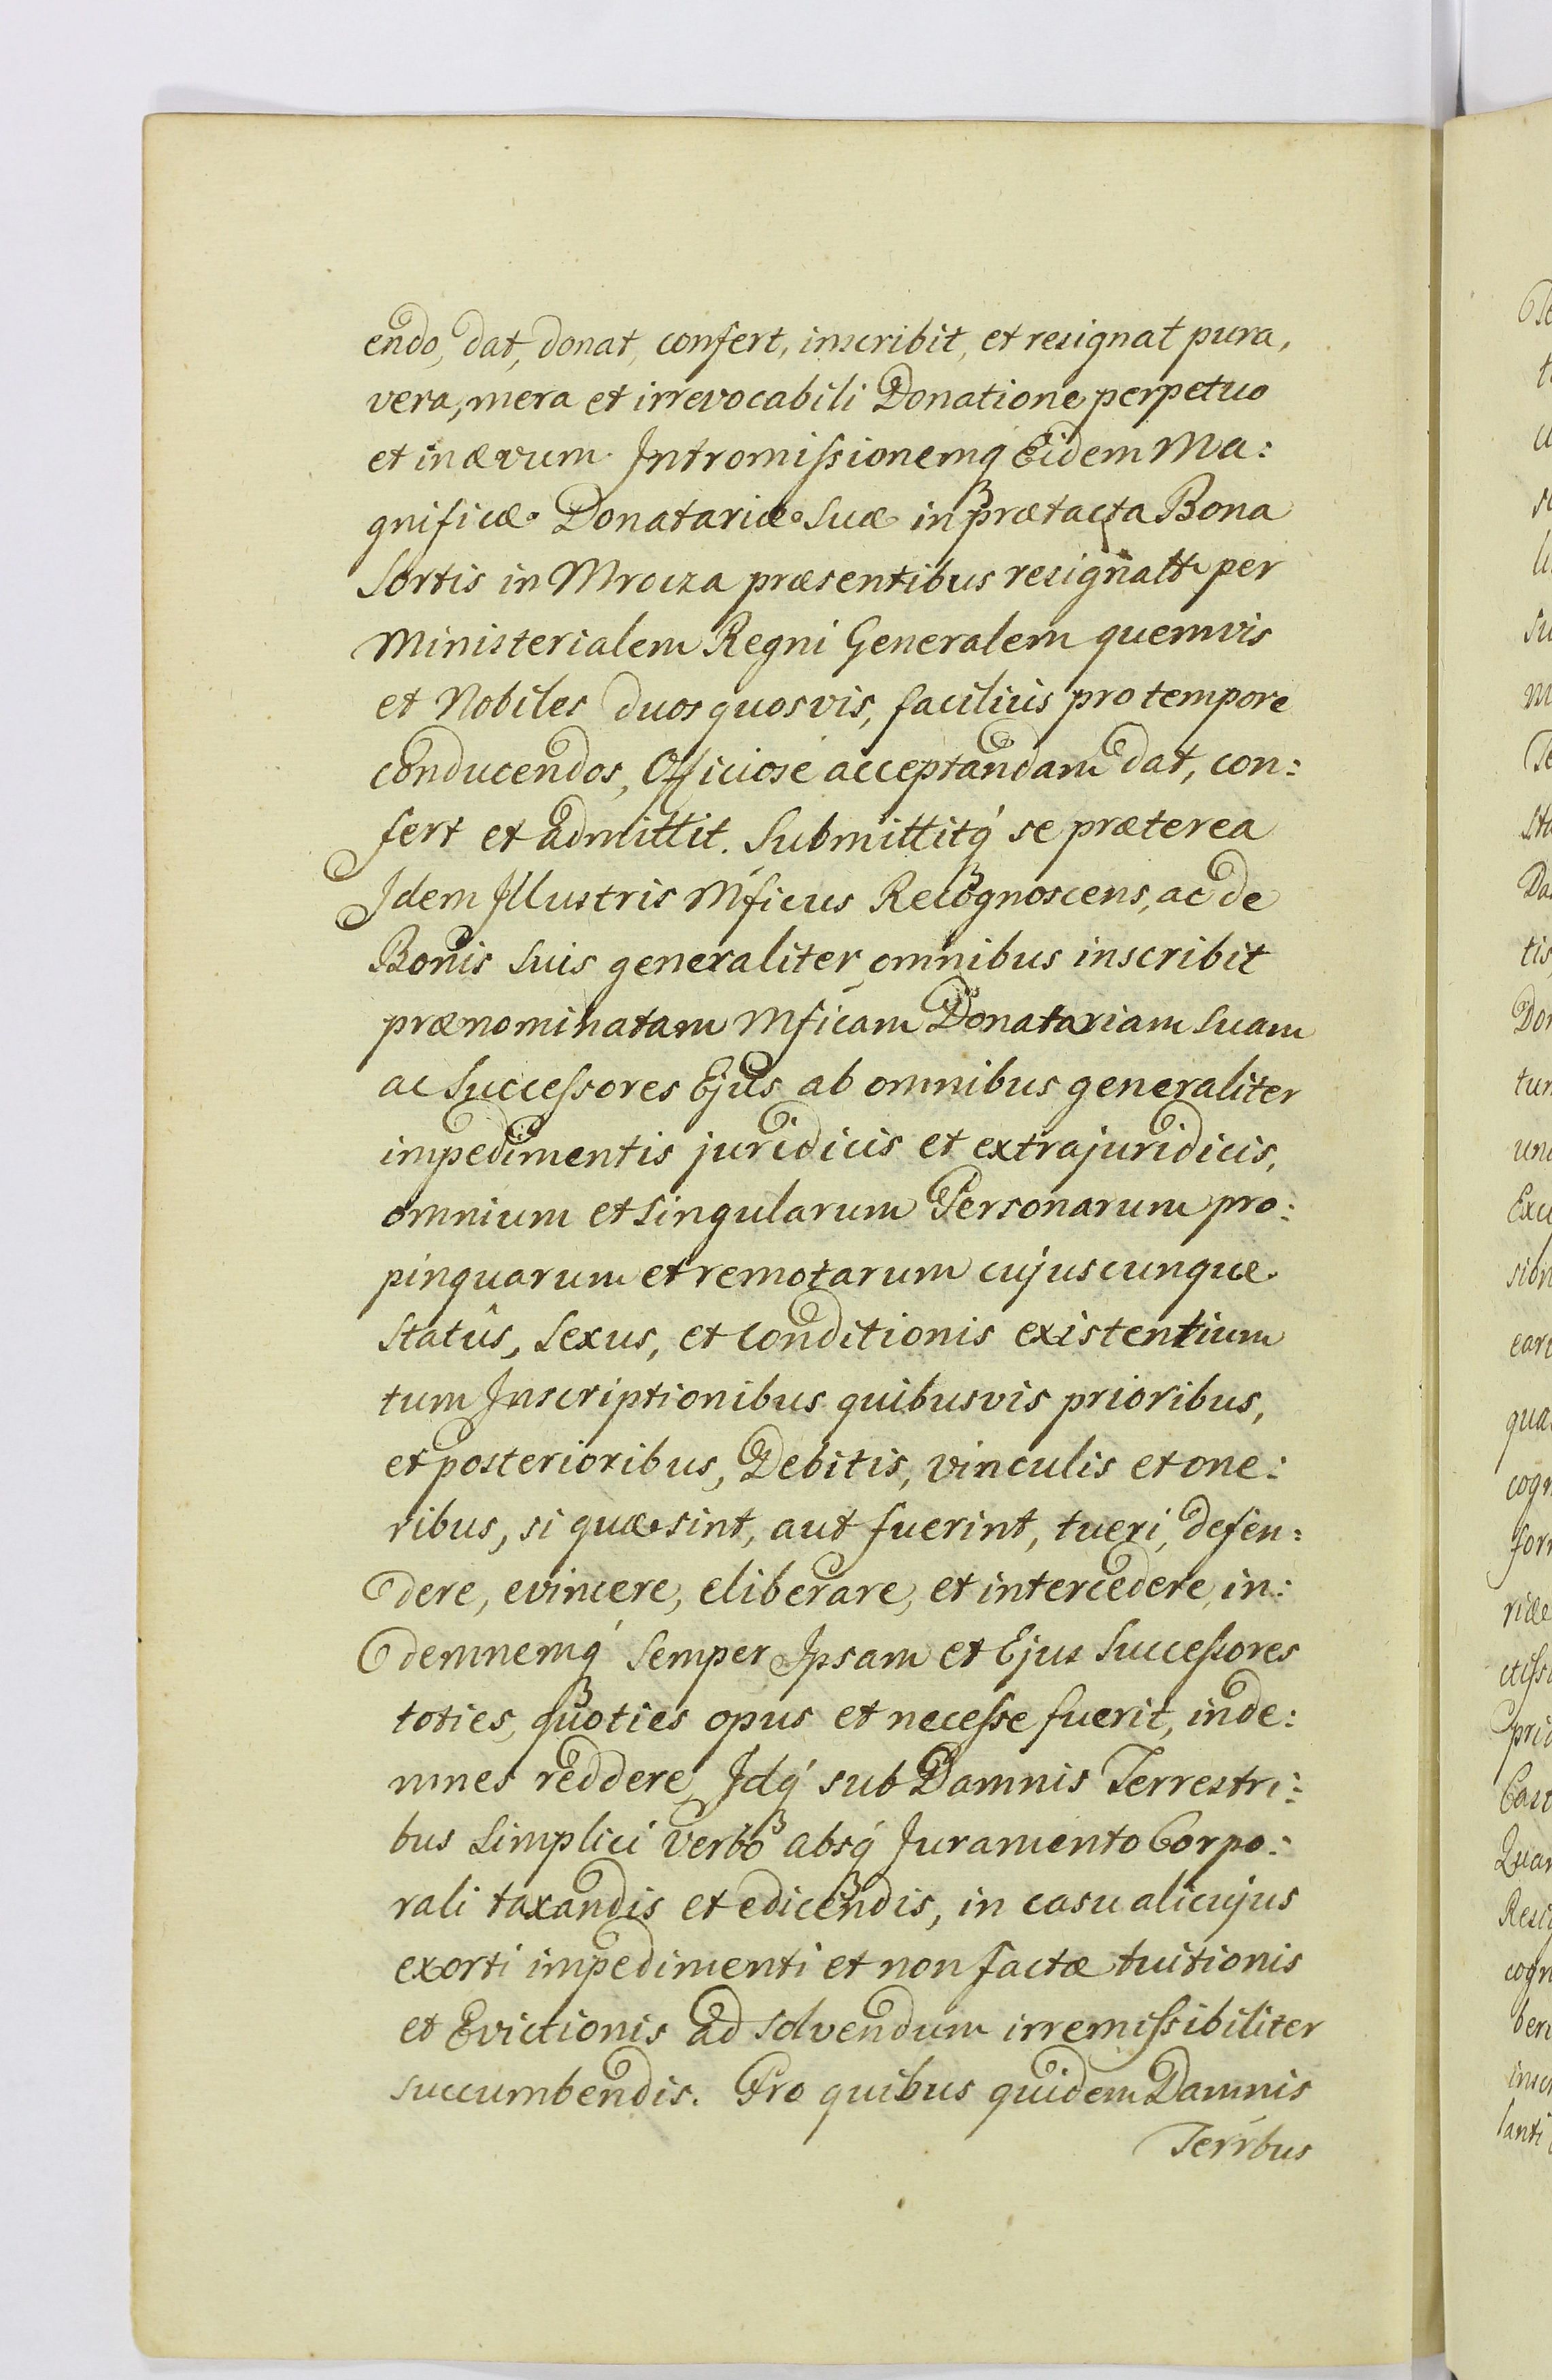 endo, dat, donat, confert, inscribit, et resignat pura,
vera, mera et irrevocabili Donatione perpetuo
et in ævum. Intromissionemq́ꝫ Eidem Ma:
gnificæ Donatariæ suæ in prætacta Bona
Sortis in Mrocza præsentibus resignatt per
Ministerialem Regni Generalem quemvis
et Nobiles duos quosvis, facilius pro tempore
conducendos, Officiose acceptandam dat, con:
fert et admittit. Submittitq́ꝫ se præterea
Idem Illustris Mficus Recognoscens, ac de
Bonis suis generaliter omnibus inscribit
prænominatam Mficam Donatariam suam
ac Successores Ejus ab omnibus generaliter
impedimentis juridicis et extrajuridicis,
omnium et singularum Personarum pro:
pinquarum et remotarum cujuscunque
statûs, sexus, et conditionis existentium
tum Inscriptionibus quibusvis prioribus,
et posterioribus, Debitis, vinculis et one:
ribus, si quæ sint, aut fuerint, tueri, defen:
dere, evincere, eliberare, et intercedere, in:
demnemq́ꝫ semper Ipsam et Ejus Successores
toties, quoties opus et necesse fuerit, inde:
mnes reddere, Idq́ꝫ sub Damnis Terrestri:
bus simplici verbo absq́ꝫ Juramento Corpo:
rali taxandis et edicendis, in casu alicujus
exorti impedimenti et non factæ tuitionis
et Evictionis ad solvendum irremissibiliter
succumbendis. Pro quibus quidem Damnis
Terribus